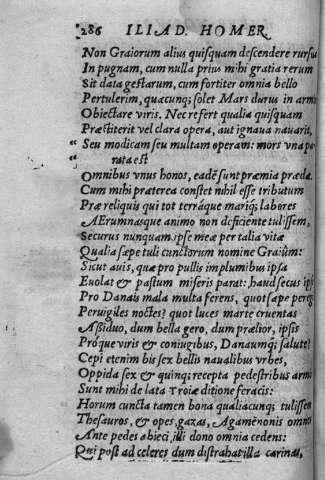 286 ILIAD. HOMER.
Non Graiorum alius quisquam descendere rursu
In pugnam, cum nulla prius mihi gratia rerum
Sit data gestarum, cum fortiter omnia bello
Pertulerim, quacunq; solet Mars durus in armis
Obiectare viris. Nec refert qualia quisquam
Præstiterit vel clara opera, aut ignaua nauarit,
Seu modicam seu multam operam: mors vna pa
rata est
Omnibus vnus honos, eadē sunt præmia prædæ.
Cum mihi præterea constet nihil esse tributum
Præ reliquis qui tot terráque mariq; labores
AErumnasque animo non deficiente tulissem,
Securus nunquam ipse meæ per talia vitæ
Qualia sæpe tuli cunctorum nomine Graiûm:
Sicut auis, quæ pro pullis implumibus ipsa
Euolat & pastum miseris parat: haud secus ipse
Pro Danais mala multa ferens, quot sæpe pere
Peruigiles noctes? quot luces marte cruentas
Aßiduo, dum bella gero, dum prælior, ipsis
Próque viris & coniugibus, Danaumq; salute?
Cepi etenim bis sex bellis naualibus vrbes,
Oppida sex & quinq; recepta pedestribus armis
Sunt mihi de lata Troiæ ditione feracis:
Horum cuncta tamen bona qualiacunq; tulissem
Thesauros, & opes, gazas, Agamēnonis omnes
Ante pedes abieci, illi dono omnia cedens:
Qui post ad celeres dum distrahat illa carinas,